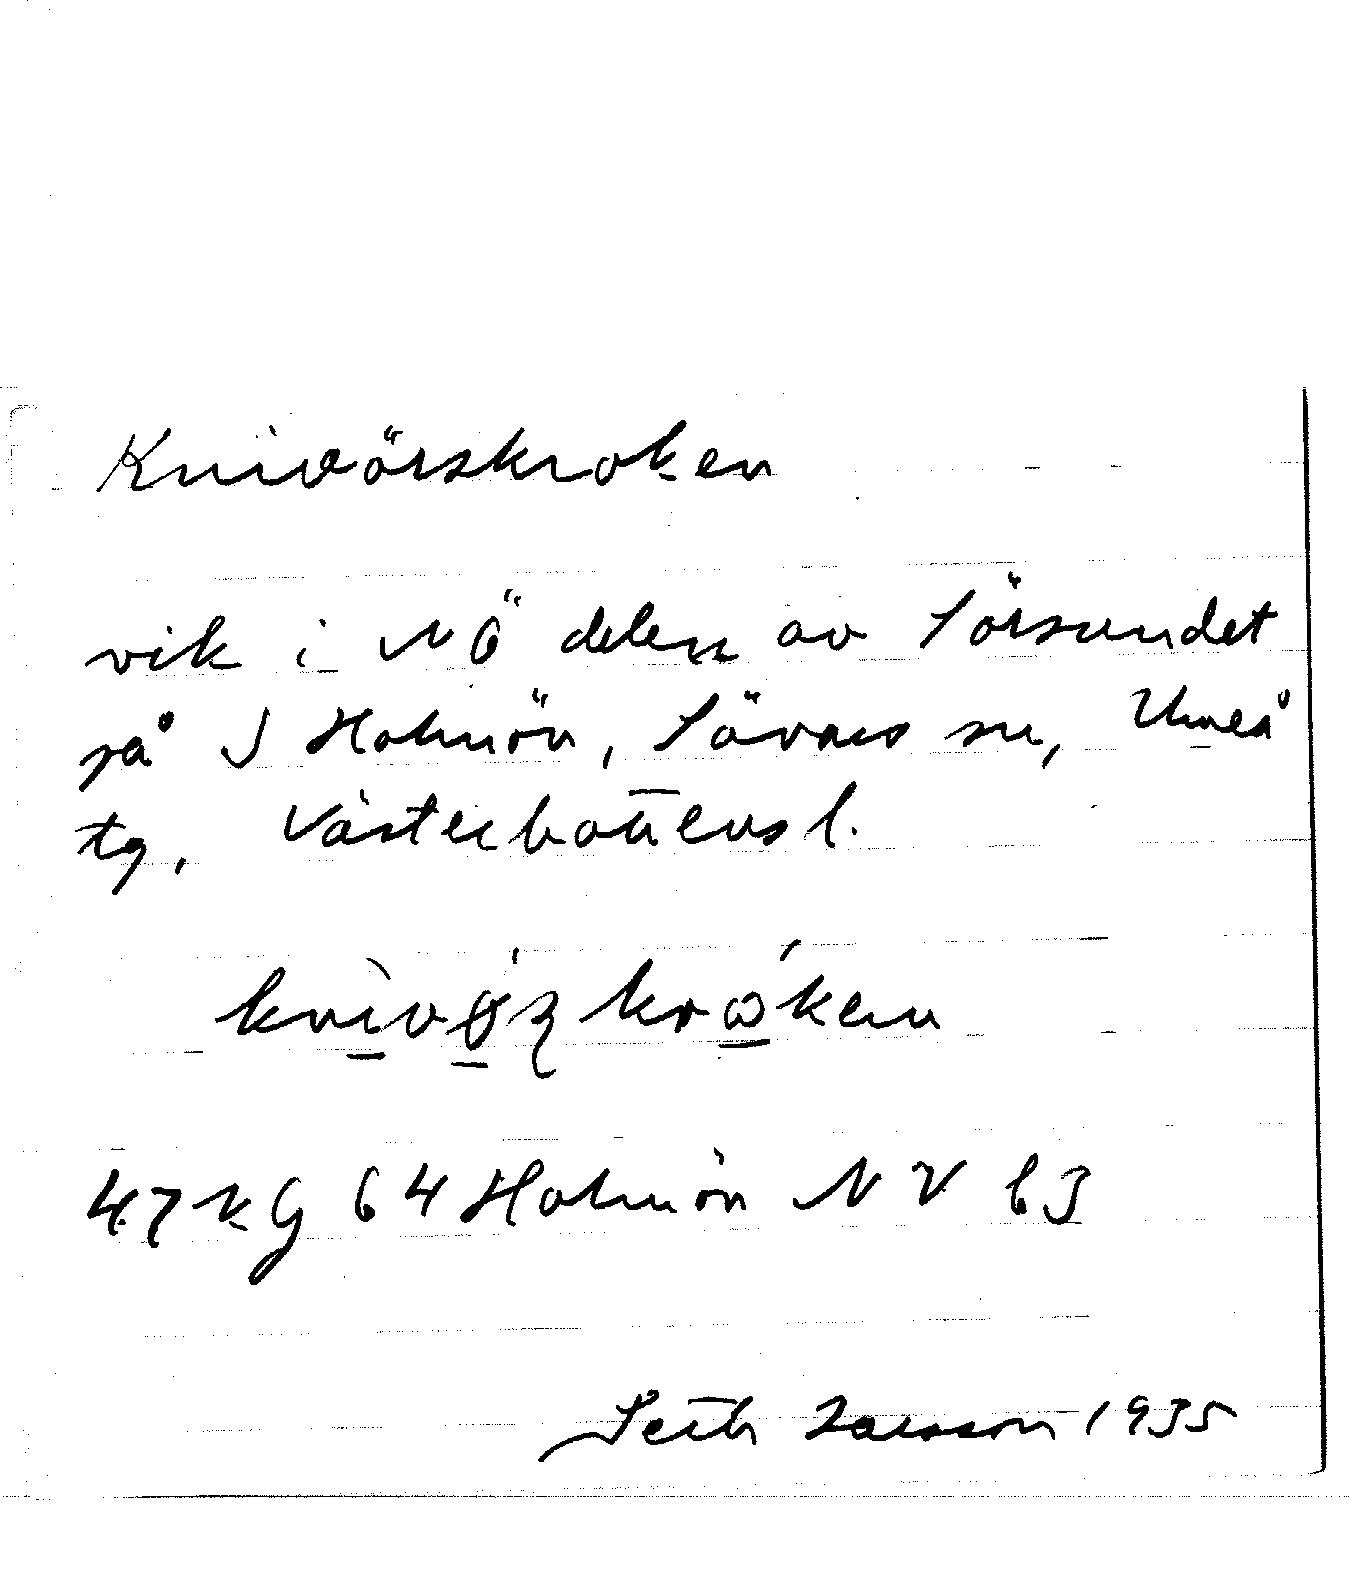 Knivörskroken
vik i NÖ delen av Sörsundet
på S Holmön, Sävars sn, Umeå
tg, Västerbottens l.
47 KG 64 Holmön NV b3
Seth Larsson 1935